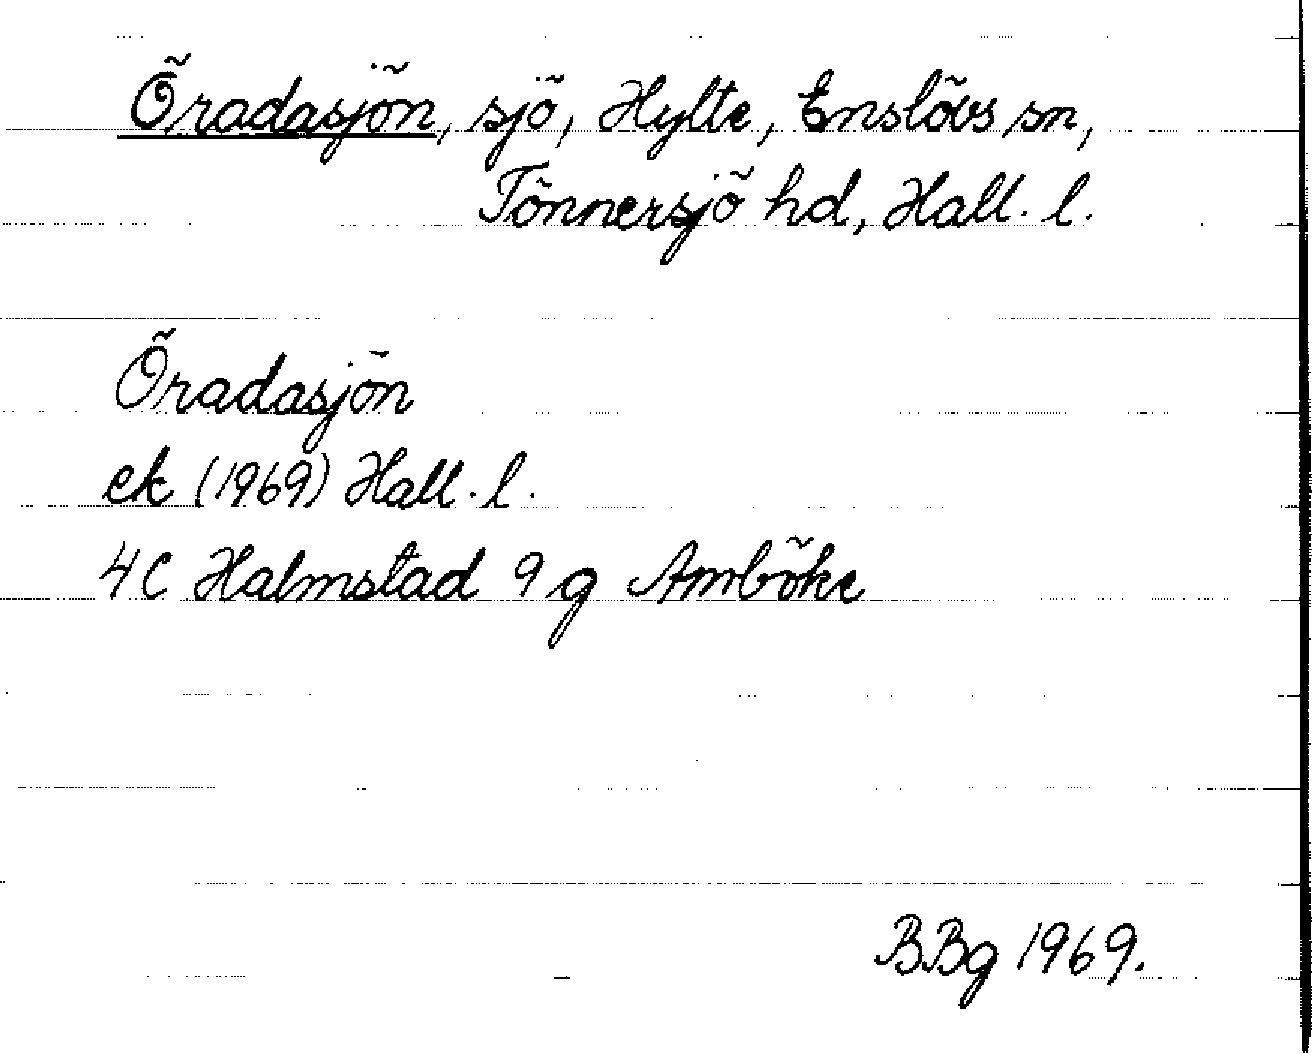 Öradasjön, sjö, Hylte, Enslövs sn,
Tönnersjö hd, Hall. l.
Öradasjön
ek (1969) Hall. l.
4C Halmstad 9 g Amböke
BBg 1969.